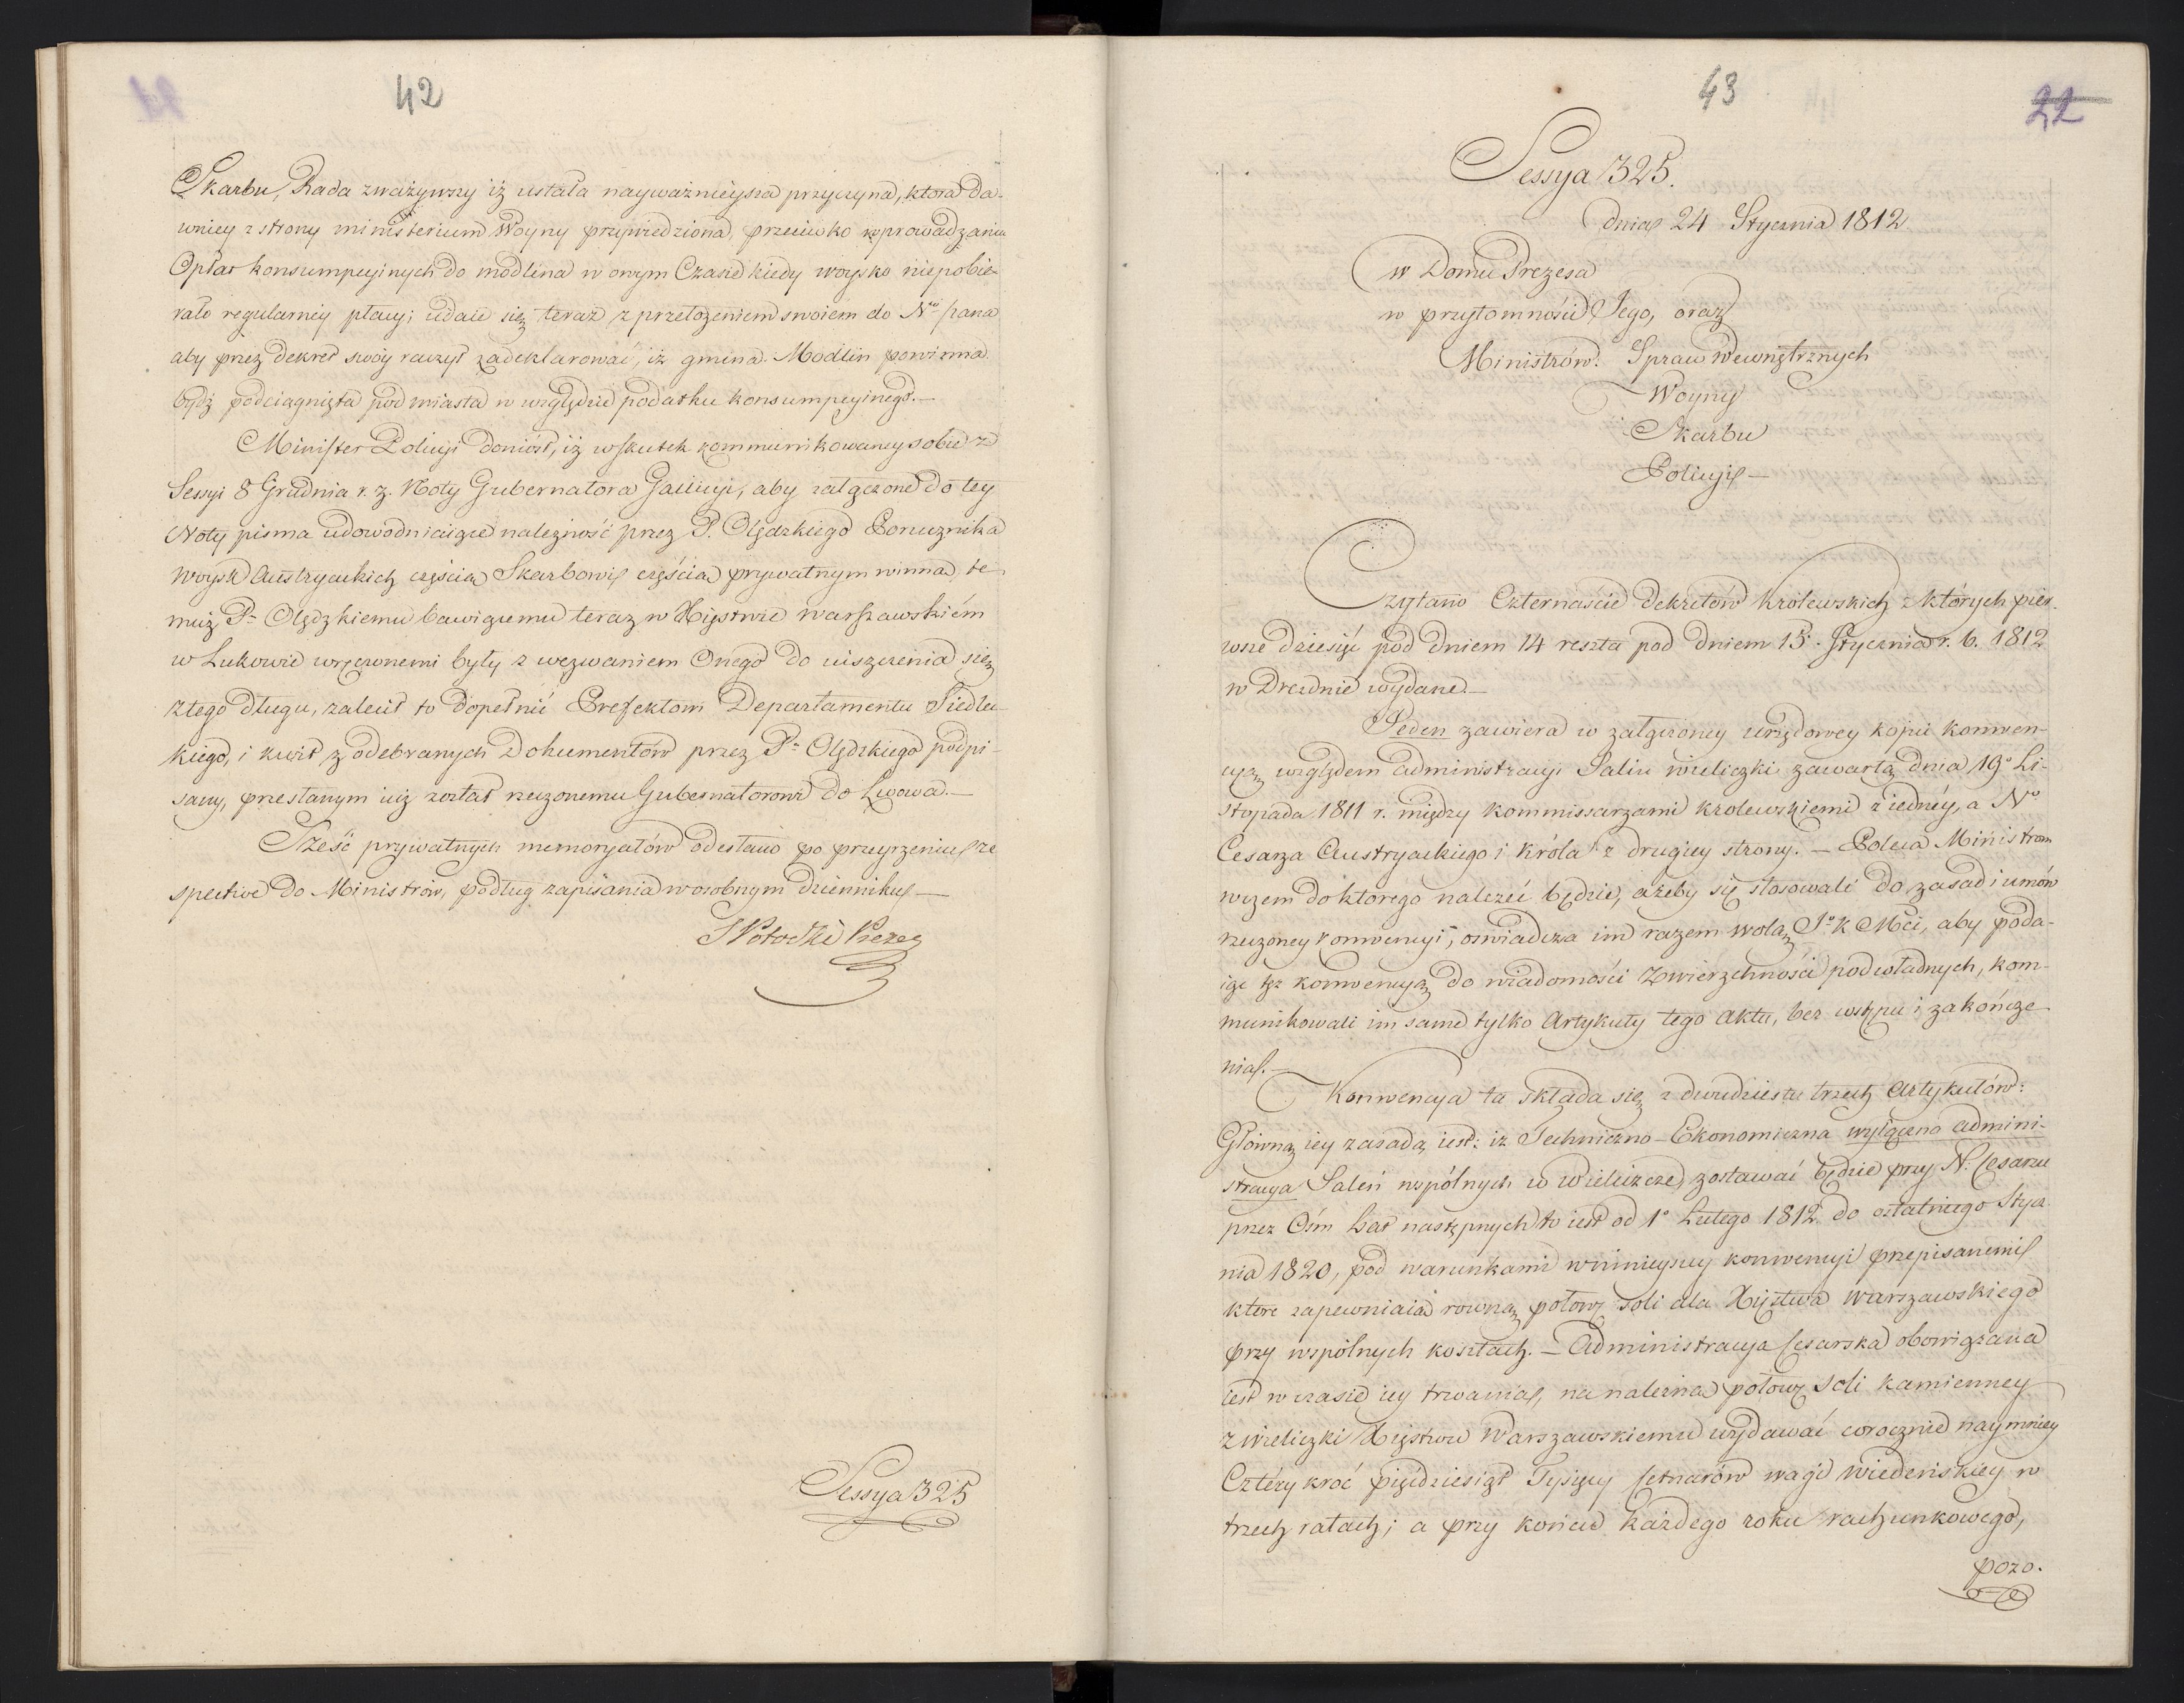 42
Skarbu, Rada zważywszy iż ustała nayważnieysza przyczyna, ktora da-
wniey z strony ministerium Woyny przywiedziona, przeciwko wprowadzaniu
Opłat konsumpcyinych do modlina w owym Czasie kiedy woysko niepobie-
rało regularniey płacy; udaie się teraz z przełożeniem swoiem do Nº pana
aby przez dekret swóy raczył zadeklarować, iż gmina Modlin powinna
bydź podciągnięta pod miasta w względzie podatku konsumpcyinego.—
Minister Policyi doniósł, iż wskutek kommunikowaney sobie z
Sessyi 8 Grudnia r. z. Noty Gubernatora Gallicyi, aby załączone do tey
Noty pisma udowodniaiące należność przez P. Olędzkiego Porucznika
woysk Austryackich częścią Skarbowi częścią prywatnym winną, te-
muż P. Olędzkiemu bawiącemu teraz w Xięstwie warszawskiém
w Łukowie wręczonemi były z wezwaniem Onego do uiszczenia się
z tego długu, zalecił to dopełnić Prefektowi Departamentu Siedlec-
kiego, i kwit z odebranych Dokumentów przez P. Olędzkiego podpi-
sany, przesłanym iuż został rzeczonemu Gubernatorowi do Lwowa.—
Sześć prywatnych memoryałów odesłano po przeyrzeniu re
spective do Ministrów, podług zapisania w osobnym dzienniku—
S Potocki Prezes
Sessya 325
43
22
Sessya 325.
dnia 24 Stycznia 1812
w Domu Prezesa
w przytomności Jego, oraz
Ministrów. Spraw Wewnętrznych
Woyny
Skarbu
Policyi—
Czytano Czternaście Dekretów Królewskich z których pier-
wsze dziesięć pod dniem 14 reszta pod dniem 15. Stycznia r. b. 1812
w Dreźnie wydane.—
Jeden zawiera w załączoney urzędowey kopii konwen-
cyą względem administracyi Salin wieliczki zawartą dnia 19º Li-
stopada 1811 r. między kommissarzami krolewskiemi z iednéy, a Nº
Cesarza Austryackiego i króla z drugiey strony.— Poleca Ministrom
wczem do ktorego należeć będzie, ażeby się stosowali do zasad i umów
rzeczoney konwencyi, oswiadcza im razem wolą J. K Mci, aby poda-
iąc tę konwencyą do wiadomości Zwierzchności podwładnych, kom-
munikowali im same tylko Artykuły tego aktu, bez wstępu i zakończe
nia.—
Konwencya ta składa się z dwudziestu trzech Artykułów:
Główną iey zasadą iest: iż Techniczno-Ekonomiczna wyłączna admini-
stracya Salin wspólnych w Wieliczce, zostawać będzie przy N. Cesarzu
przez Ośm Lat następnych to iest od 1º Lutego 1812 do ostatniego Stycz
nia 1820, pod warunkami w ninieyszey konwencyi przepisanemi
ktore zapewniaią rowną połowę soli dla Xięstwa warszawskiego
przy wspólnych kosztach.— Administracya Cesarska obowiązana
iest w czasie iey trwania, na należną połowę soli kamienney
z wieliczki Xięstwu Warszawskiemu wydawać corocznie naymniey
Cztéry kroć pięćdziesiąt Tysięcy Cetnarów wagi Wiedeńskiey w
trzech ratach; a przy końcu każdego roku rachunkowego,
pozo.